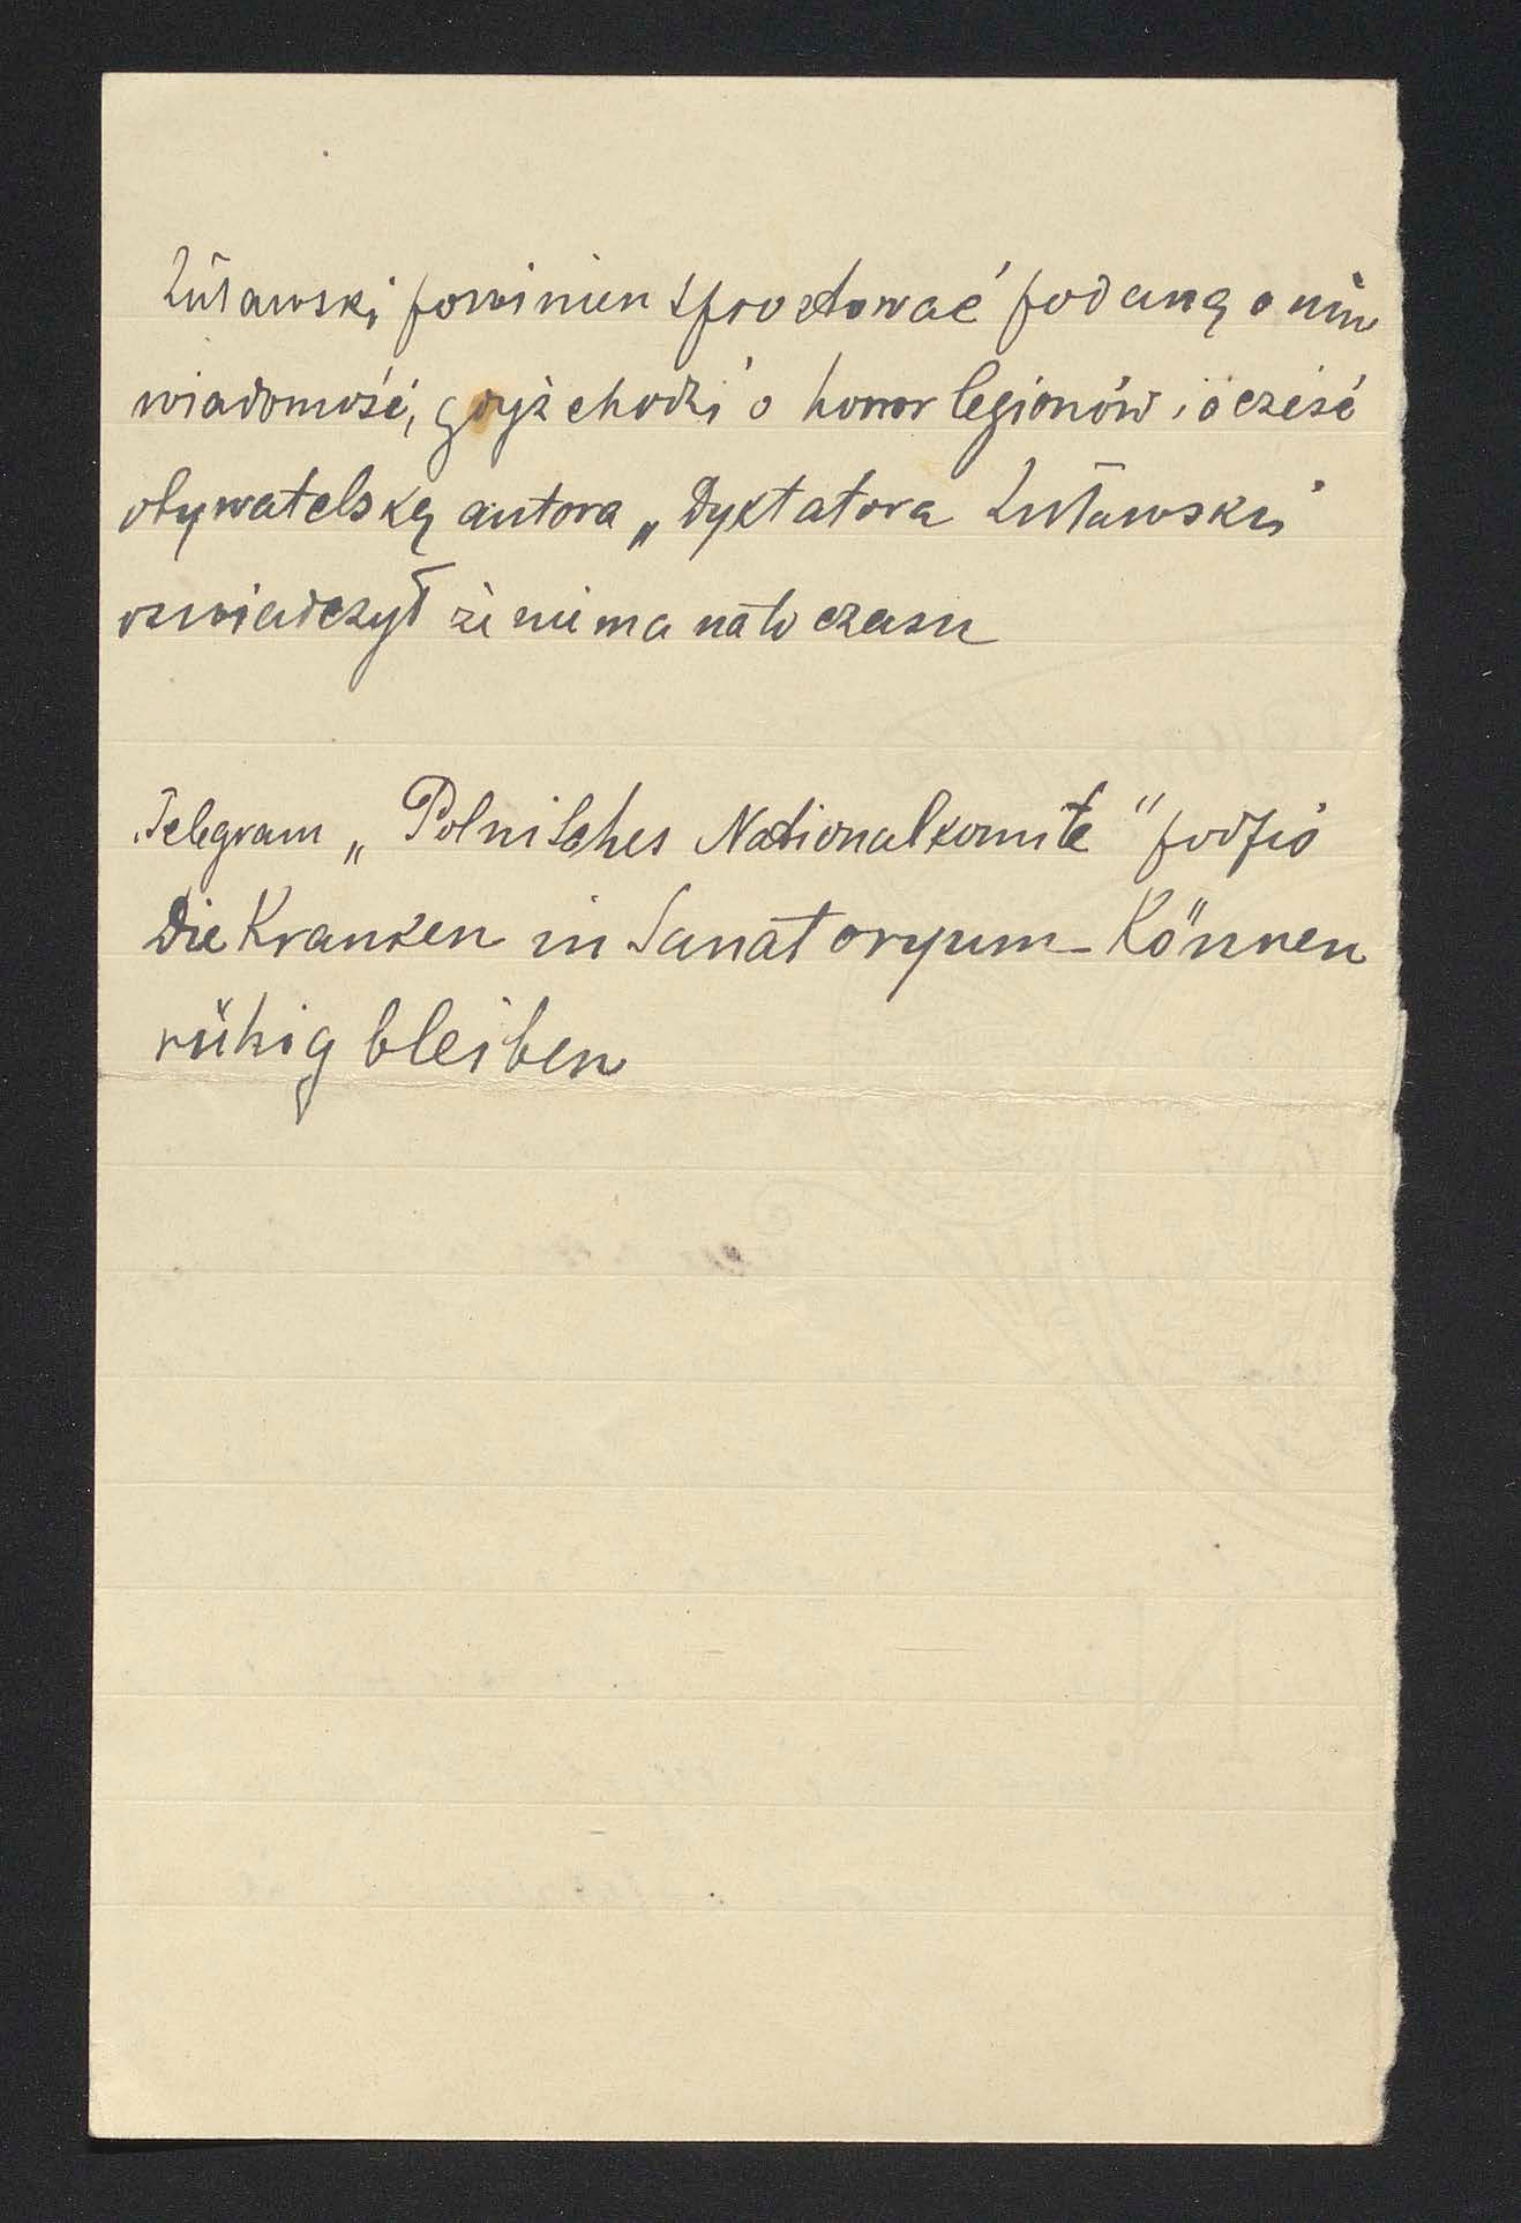 Żuławski powinien sprostować podaną o nim
wiadomość, gdyż chodzi o honor legionów i o cześć
obywatelską autora „Dyktatora Żuławski
oswiadczył że nie ma na to czasu
Telegram „Polnisches Nationalkomite" podpis
Die Kranken in Sanatoryum - Können
rühig bleiben